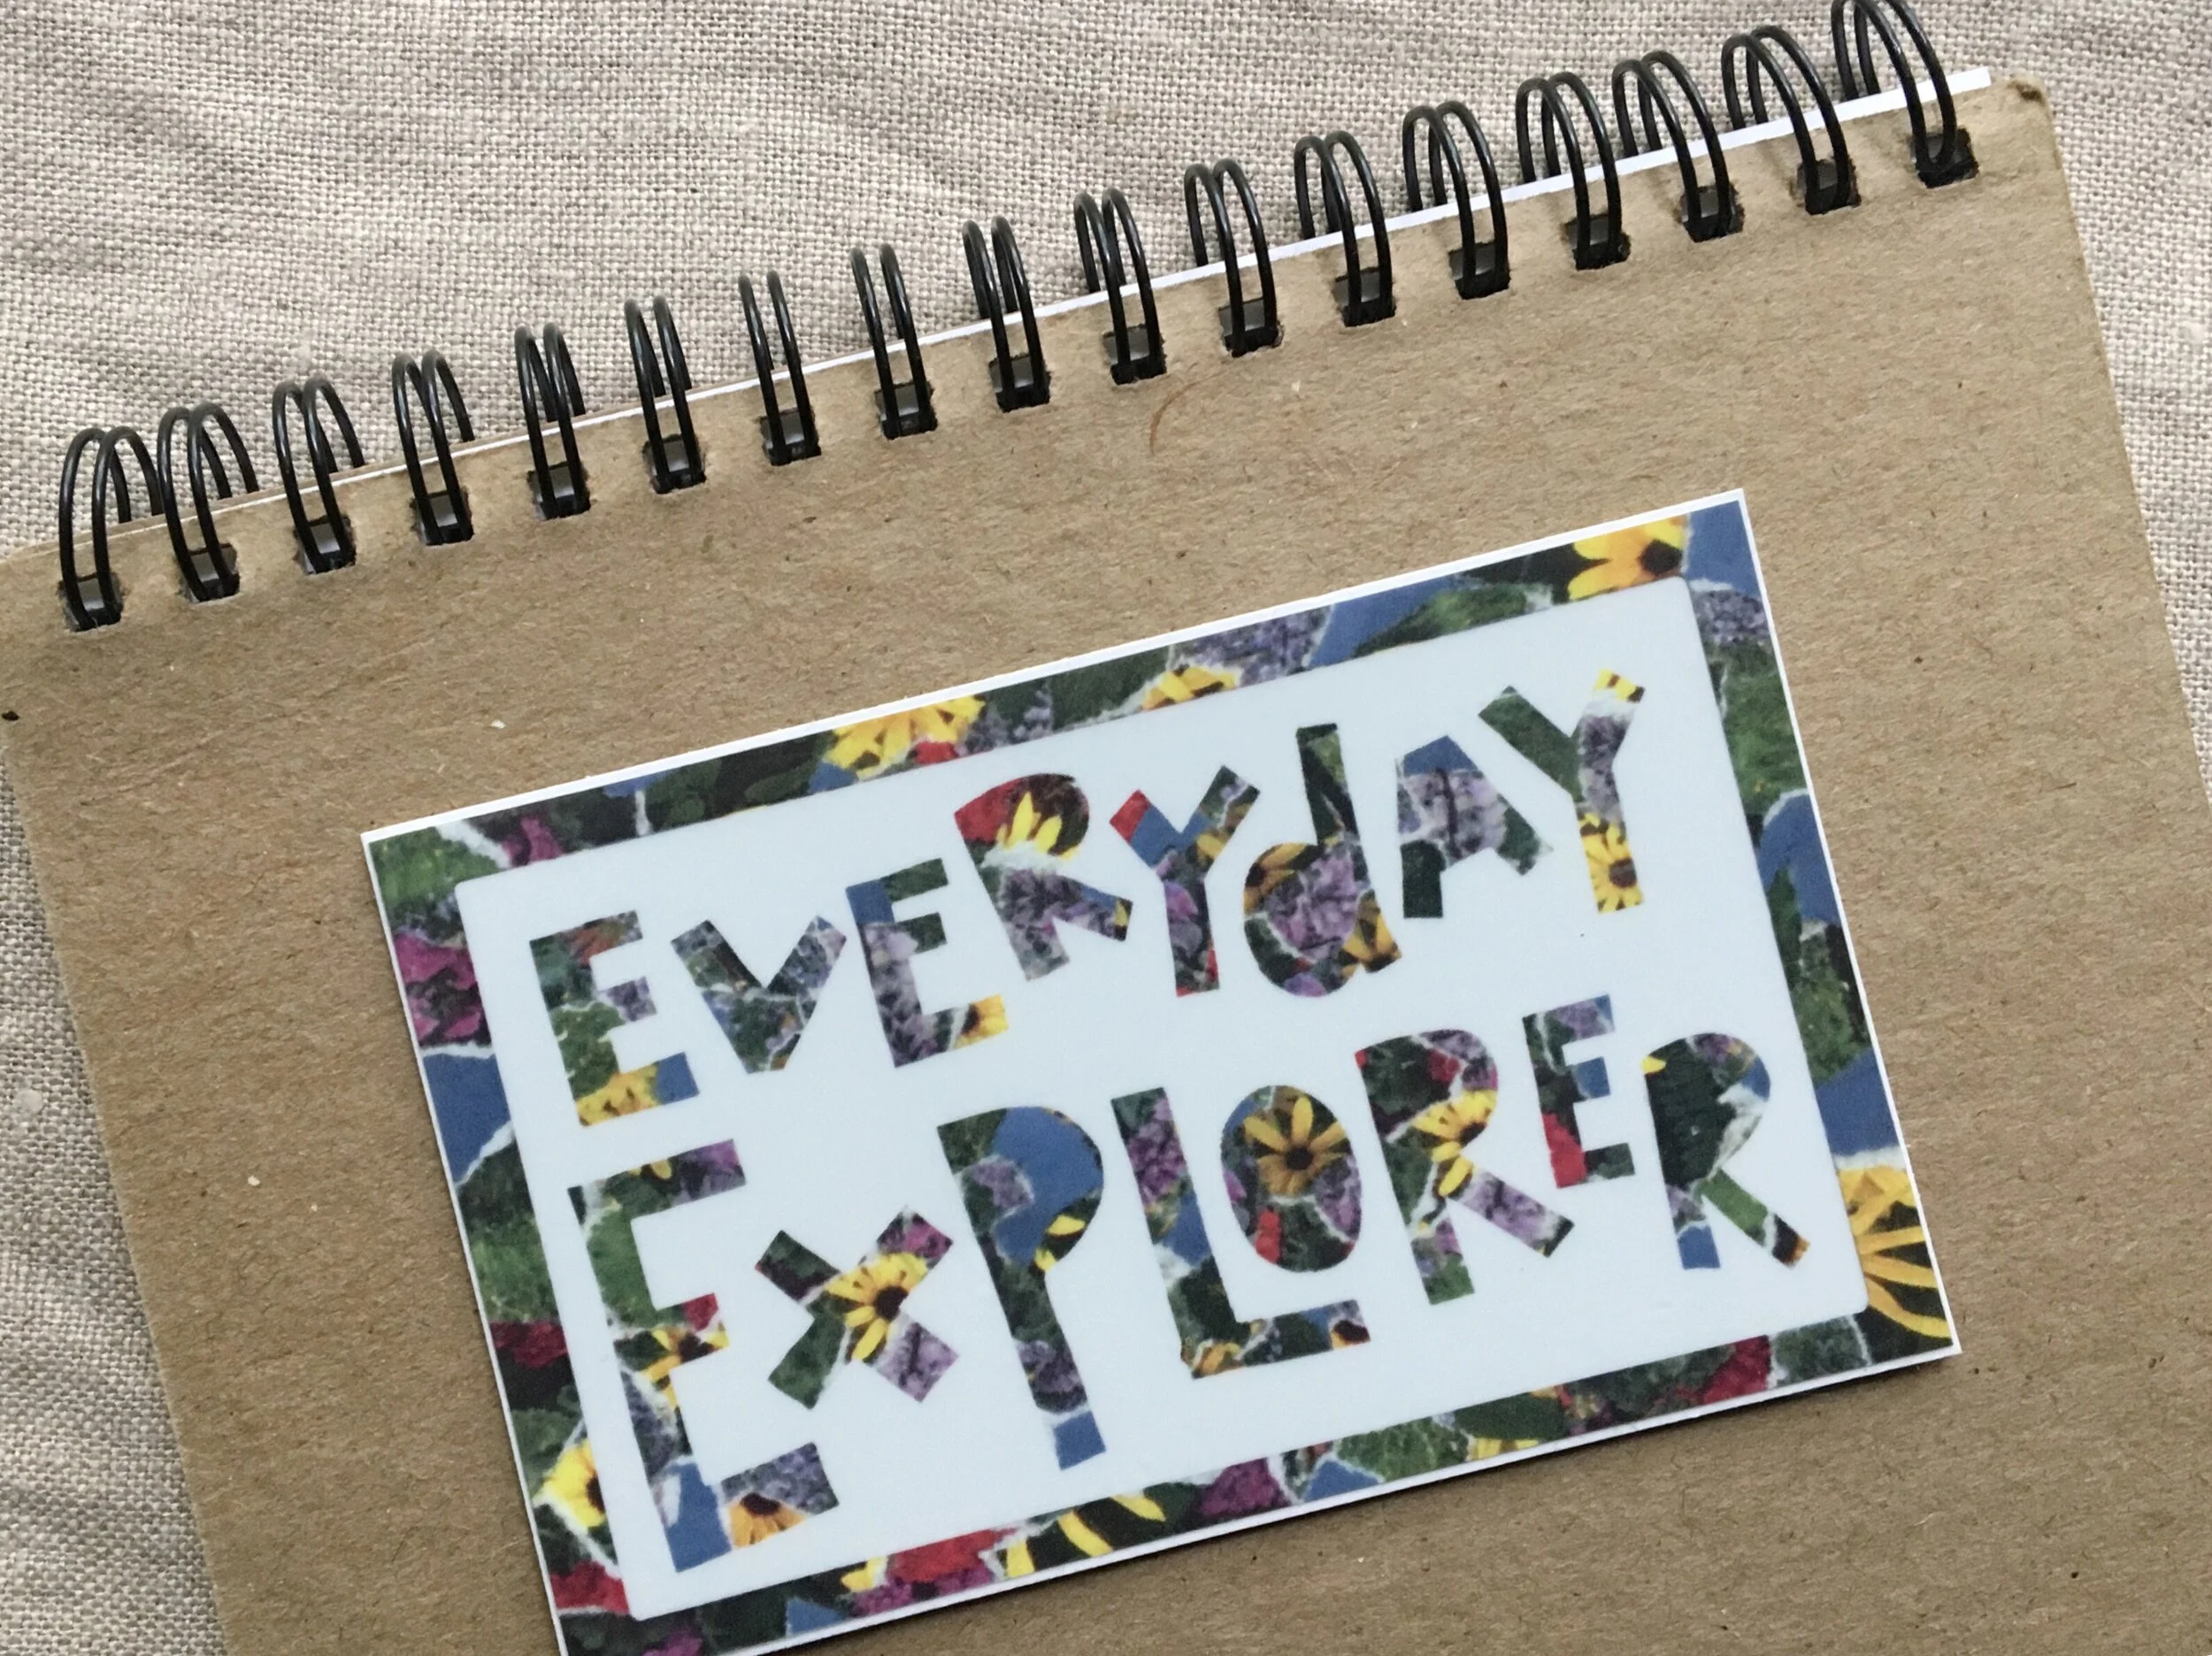 EVERYdAY
ExPLORER